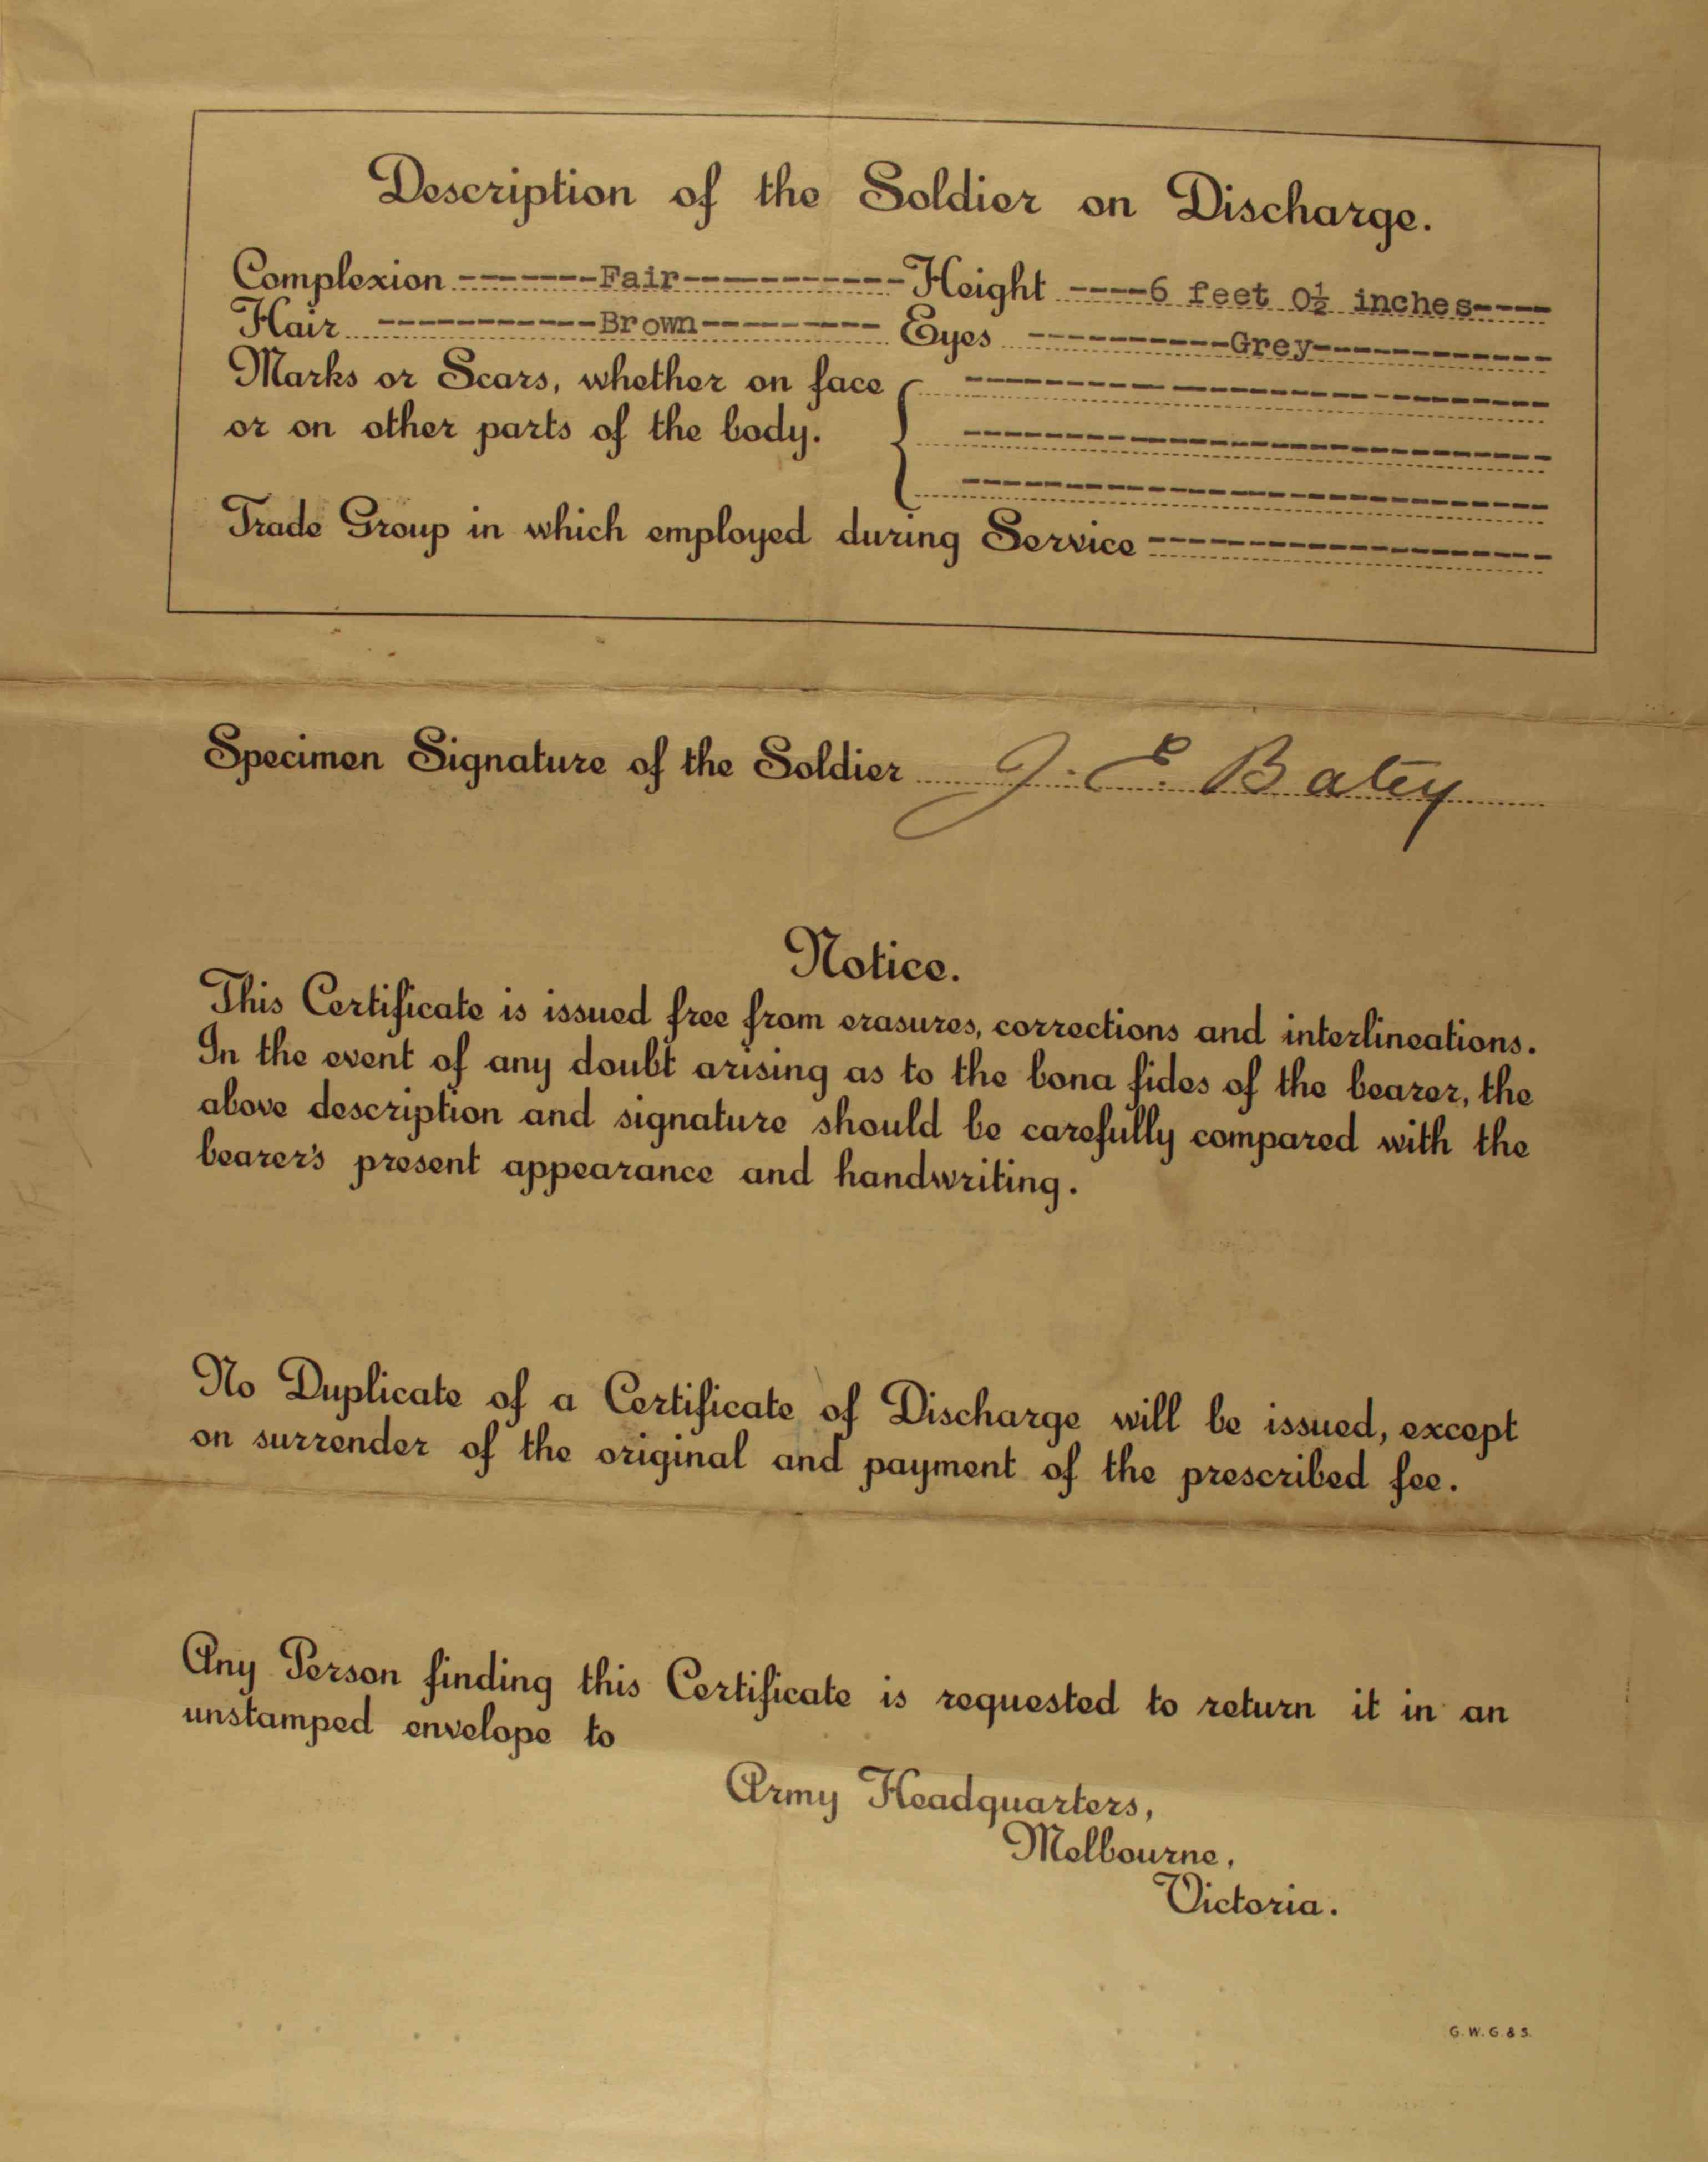 Description of the Soldier on Discharge.
Complexion -------Fair----------- Height ----6 feet 0½ inches----
Hair -----------Brown--------- Eyes ----------Grey------------
Marks or Scars, whether on face
or on other parts of the body.
Trade Group in which employed during Service --------------------
Specimen Signature of the Soldier J. E. Batey
Notice.
This Certificate is issued free from erasures, corrections and interlineations.
In the event of any doubt arising as to the bona fides of the bearer, the
above description and signature should be carefully compared with the
bearer's present appearance and handwriting.
No Duplicate of a Certificate of Discharge will be issued, except
on surrender of the original and payment of the prescribed fee.
Any Person finding this Certificate is requested to return it in an
unstamped envelope to
Army Headquarters,
Melbourne,
Victoria.
G. W. G. & S.